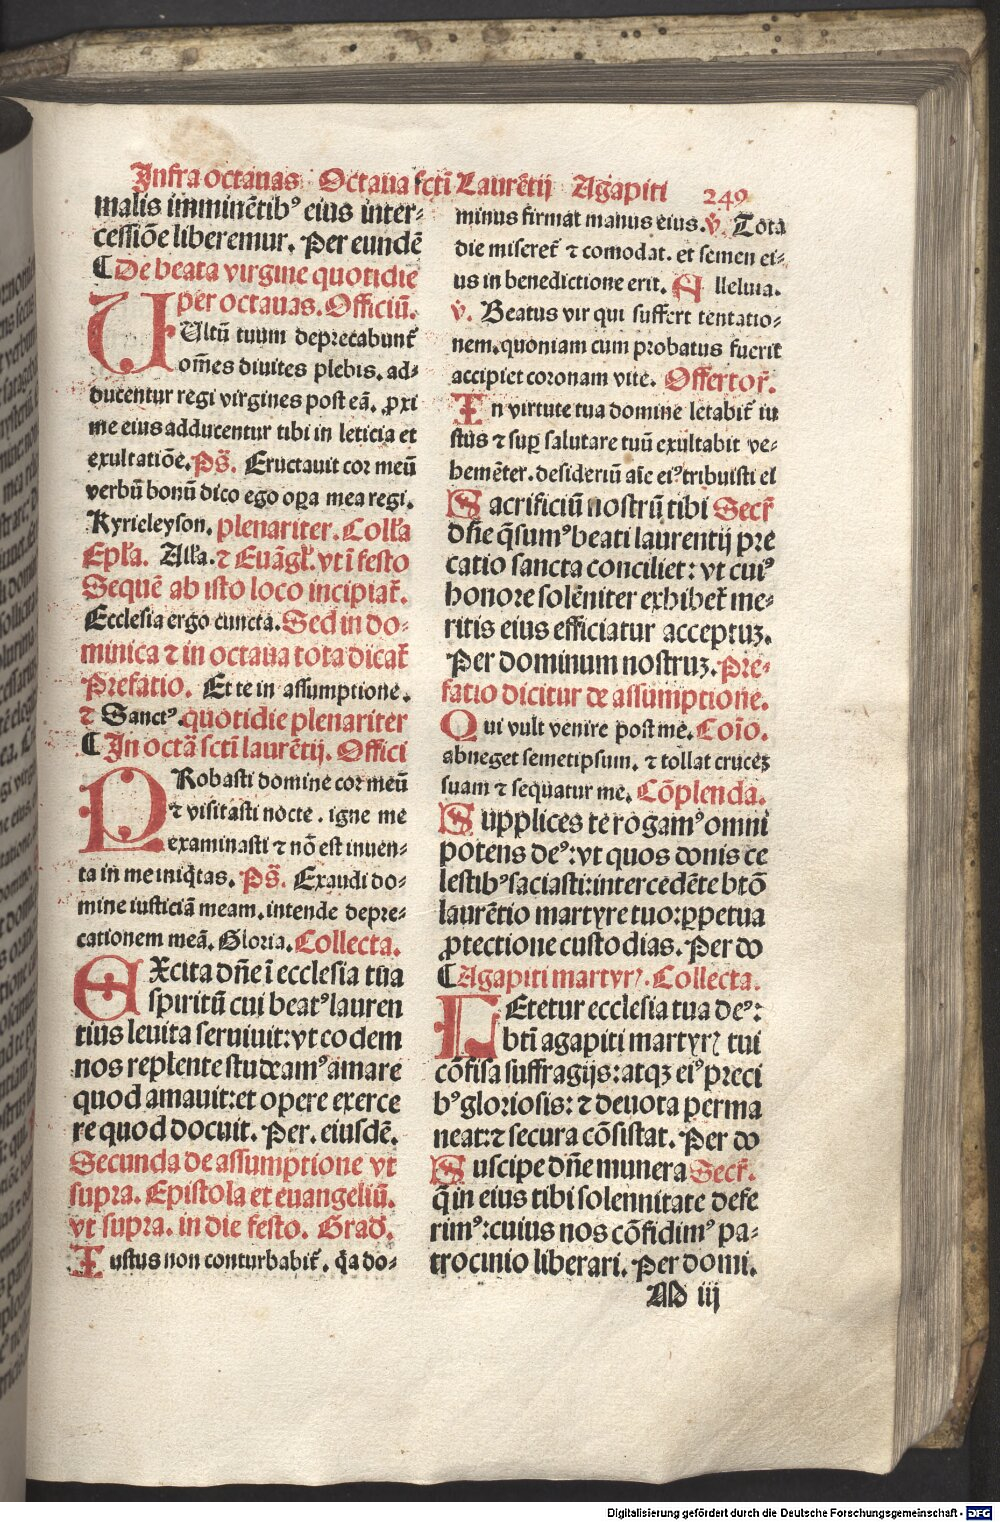 Infra octauas Octaua sctī Laurētij Agapiti 249
malis imminētibꝰ eius inter⸗
cessiōe liberemur. Per eundē
¶ De beata virgine quotidie
per octauas. Officiū.
VUltū tuum deprecabunt᷑
om̄es diuites plebis. ad⸗
ducentur regi virgines post eā. ꝓxi
me eius adducentur tibi in leticia et
exultatiōe. Ps̄. Eructauit cor meū
verbū bonū dico ego oꝑa mea regi.
Kyrieleyson. plenariter. Coll'a
Epl'a. All'a. ⁊ Euāgl'. vt ī festo
Sequē ab isto loco incipiat᷑.
Ecclesia ergo cuncta. Sed in do⸗
minica ⁊ in octaua tota dicat᷑
Prefatio. Et te in assumptione.
⁊ Sanctꝰ. quotidie plenariter
¶ In octā sctī laurētij. Offici
PRobasti domine cor meū
⁊ visitasti nocte. igne me
examinasti ⁊ nō est inuen⸗
ta in me iniq̄tas. Ps̄. Exaudi do⸗
mine iusticiā meam. intende depre⸗
cationem meā. Gloria. Collecta.
EXcita dn̄e ī ecclesia tua
spiritū cui beatꝰ lauren
tius leuita seruiuit: vt eodem
nos replente studeamꝰ amare
quod amauit: et opere exerce
re quod docuit. Per. eiusdē.
Secunda de assumptione vt
supra. Epistola et euangeliū.
vt supra. in die festo. Grad᷑.
Iustus non conturbabit᷑. q̄a do⸗
minus firmat manus eius. v̄. Tota
die miseret᷑ ⁊ comodat. et semen ei⸗
us in benedictione erit. Alleluia.
v̄. Beatus vir qui suffert tentatio⸗
nem. quoniam cum probatus fuerit
accipiet coronam vite. Offertor᷑.
In virtute tua domine letabit᷑ iu
stus ⁊ suꝑ salutare tuū exultabit ve⸗
hemēter. desideriū aīe eiꝰ tribuisti ei
Sacrificiū nostrū tibi Secr᷑
dn̄e q̄sumꝰ beati laurentij pre
catio sancta conciliet: vt cuiꝰ
honore solēniter exhibet᷑ me⸗
ritis eius efficiatur acceptuꝫ.
Per dominum nostruꝫ. Pre⸗
fatio dicitur de assumptione.
Qui vult venire post me. Coīo.
abneget semetipsum. ⁊ tollat cruceꝫ
suam ⁊ sequatur me. Cōplenda.
Supplices te rogamꝰ omni
potens deꝰ: vt quos donis ce
lestibꝰ saciasti: intercedēte btō
laurētio martyre tuo: ꝑpetua
ꝓtectione custodias. Per do
¶ Agapiti martyrꝭ. Collecta.
LEtetur ecclesia tua deꝰ:
btī agapiti martyrꝭ tui
cōfisa suffragijs: atqꝫ eiꝰ preci
bꝰ gloriosis: ⁊ deuota perma
neat: ⁊ secura cōsistat. Per do
Suscipe dn̄e munera Secr᷑.
q̄ in eius tibi solennitate defe
rimꝰ: cuius nos cōfidimꝰ pa⸗
trocinio liberari. Per domi.
M iij
Digitalisierung gefördert durch die Deutsche Forschungsgemeinschaft - DFG